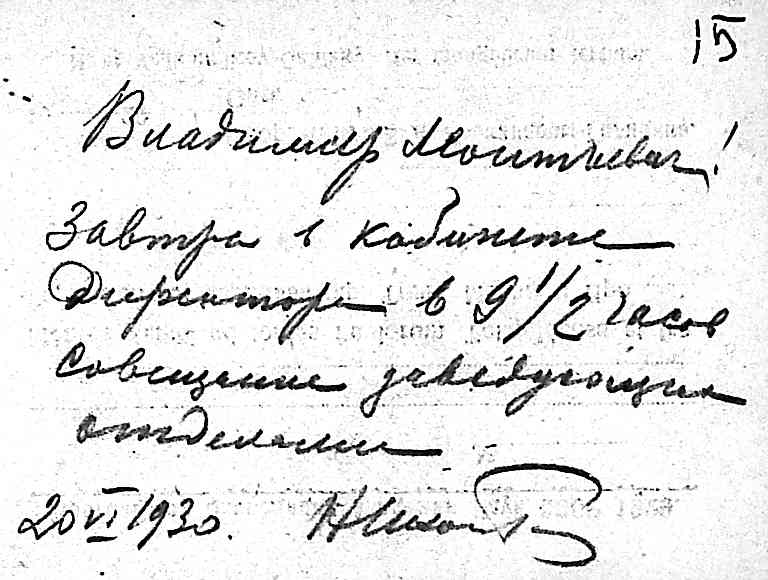 15
Владимир Леонтьевич!
Завтра в кабинете
Директора в 9 1/2 часов
совещание заведующих
отделами
20 VI 1930.